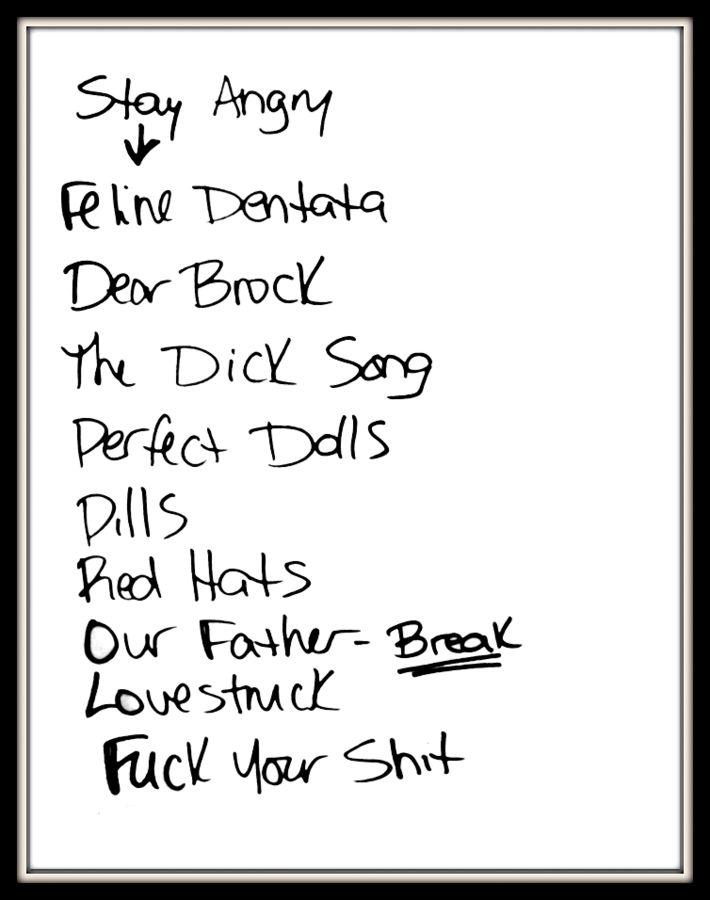 Stay Angry
↓
Feline Dentata
Dear Brock
The Dick Song
Perfect Dolls
Pills
Red Hats
Our Father - Break
Lovestruck
Fuck Your Shit